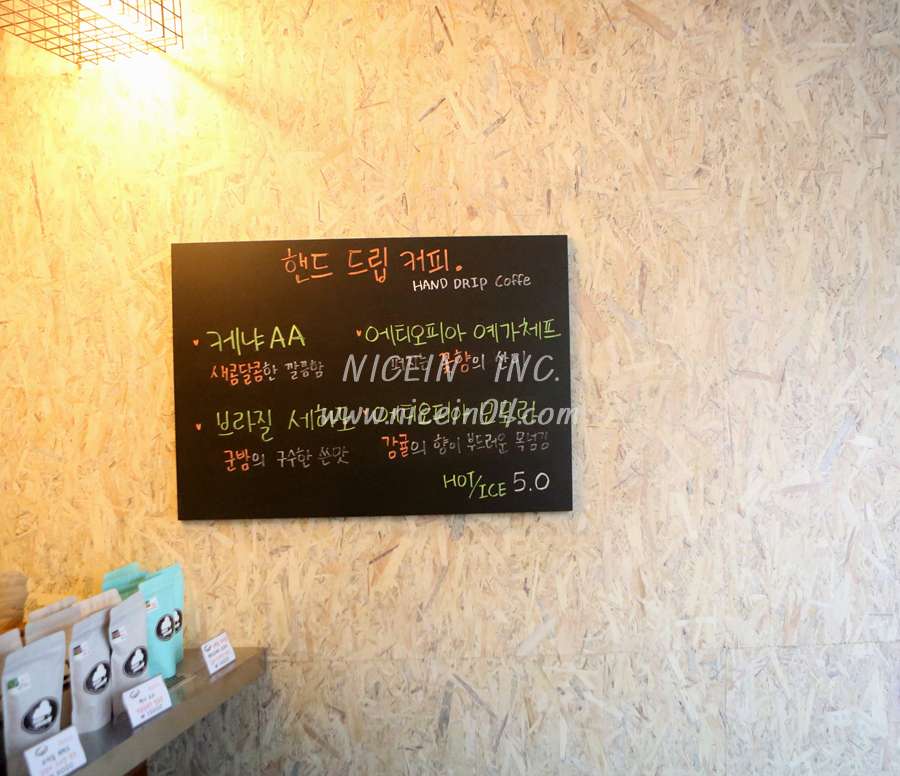 핸드 드립 커피.
HAND DRIP Coffe
케냐 AA
새콤달콤한 깔끔함
에티오피아 예가체프
퍼지는 꽃향의 산미
브라질 세하도
군밤의 구수한 쓴맛
에티오피아
감귤의 향이 부드러운 목넘김
HOT/ICE 5.0
NICEIN INC.
www.nicein04.com